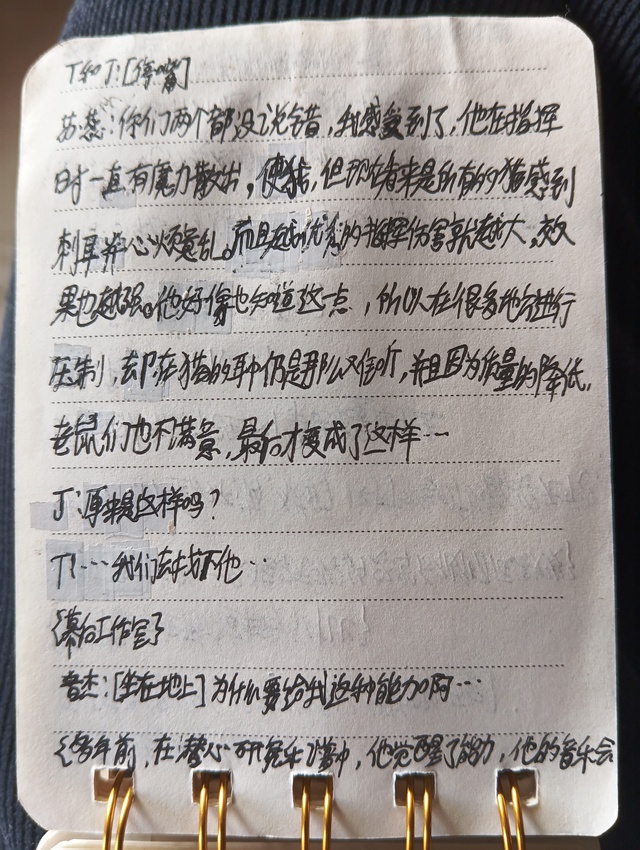 T和J：[停嘴]
苏蕊：你们两个都没说错，我感受到了，他在指挥
时一直有魔力散出，使猫，但现在看来是所有的猫感到
刺耳并心烦意乱。而且越优秀的指挥伤害就越大，效
果也越强。他好像也知道这一点，所以在很多地方进行
压制，却在猫的耳中仍是那么难听，并且因为质量的降低，
老鼠们也不满意，最后才变成了这样…
J：原来是这样吗？
T：…我们去找下他…
{幕后工作室}
音杰：[坐在地上]为什么要给我这种能力啊…
{多年前，在潜心研究乐谱中，他觉醒了能力，他的音乐会